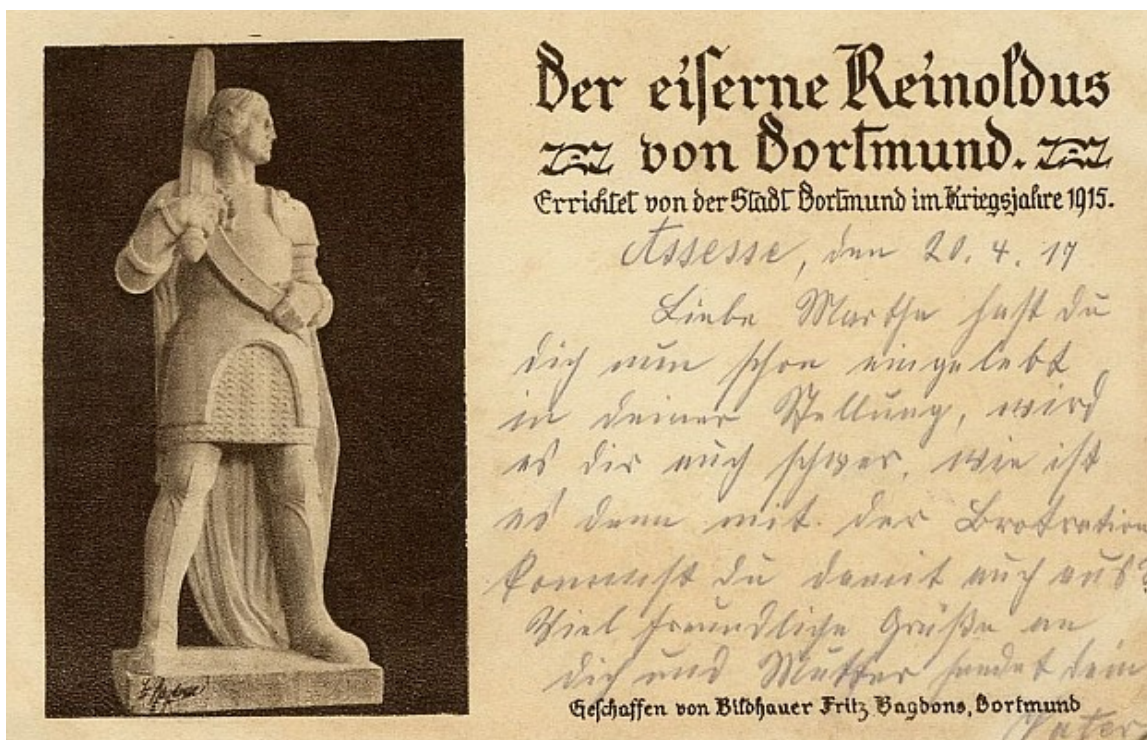 Der eiserne Reinoldus
von Dortmund.
Errichtet von der Stadt Dortmund im Kriegsjahre 1915.
Assesse, den 20. 4. 17
Liebe Martha hast du
dich nun schon eingelebt
in deiner Stellung, wird
es dir auch schwer, wie ist
es denn mit der Brotration
kommst du damit auch aus?
Viel freundliche Grüße an
dich und Mutter sendet dein
Geschaffen von Bildhauer Fritz Bagdons, Dortmund
Vater